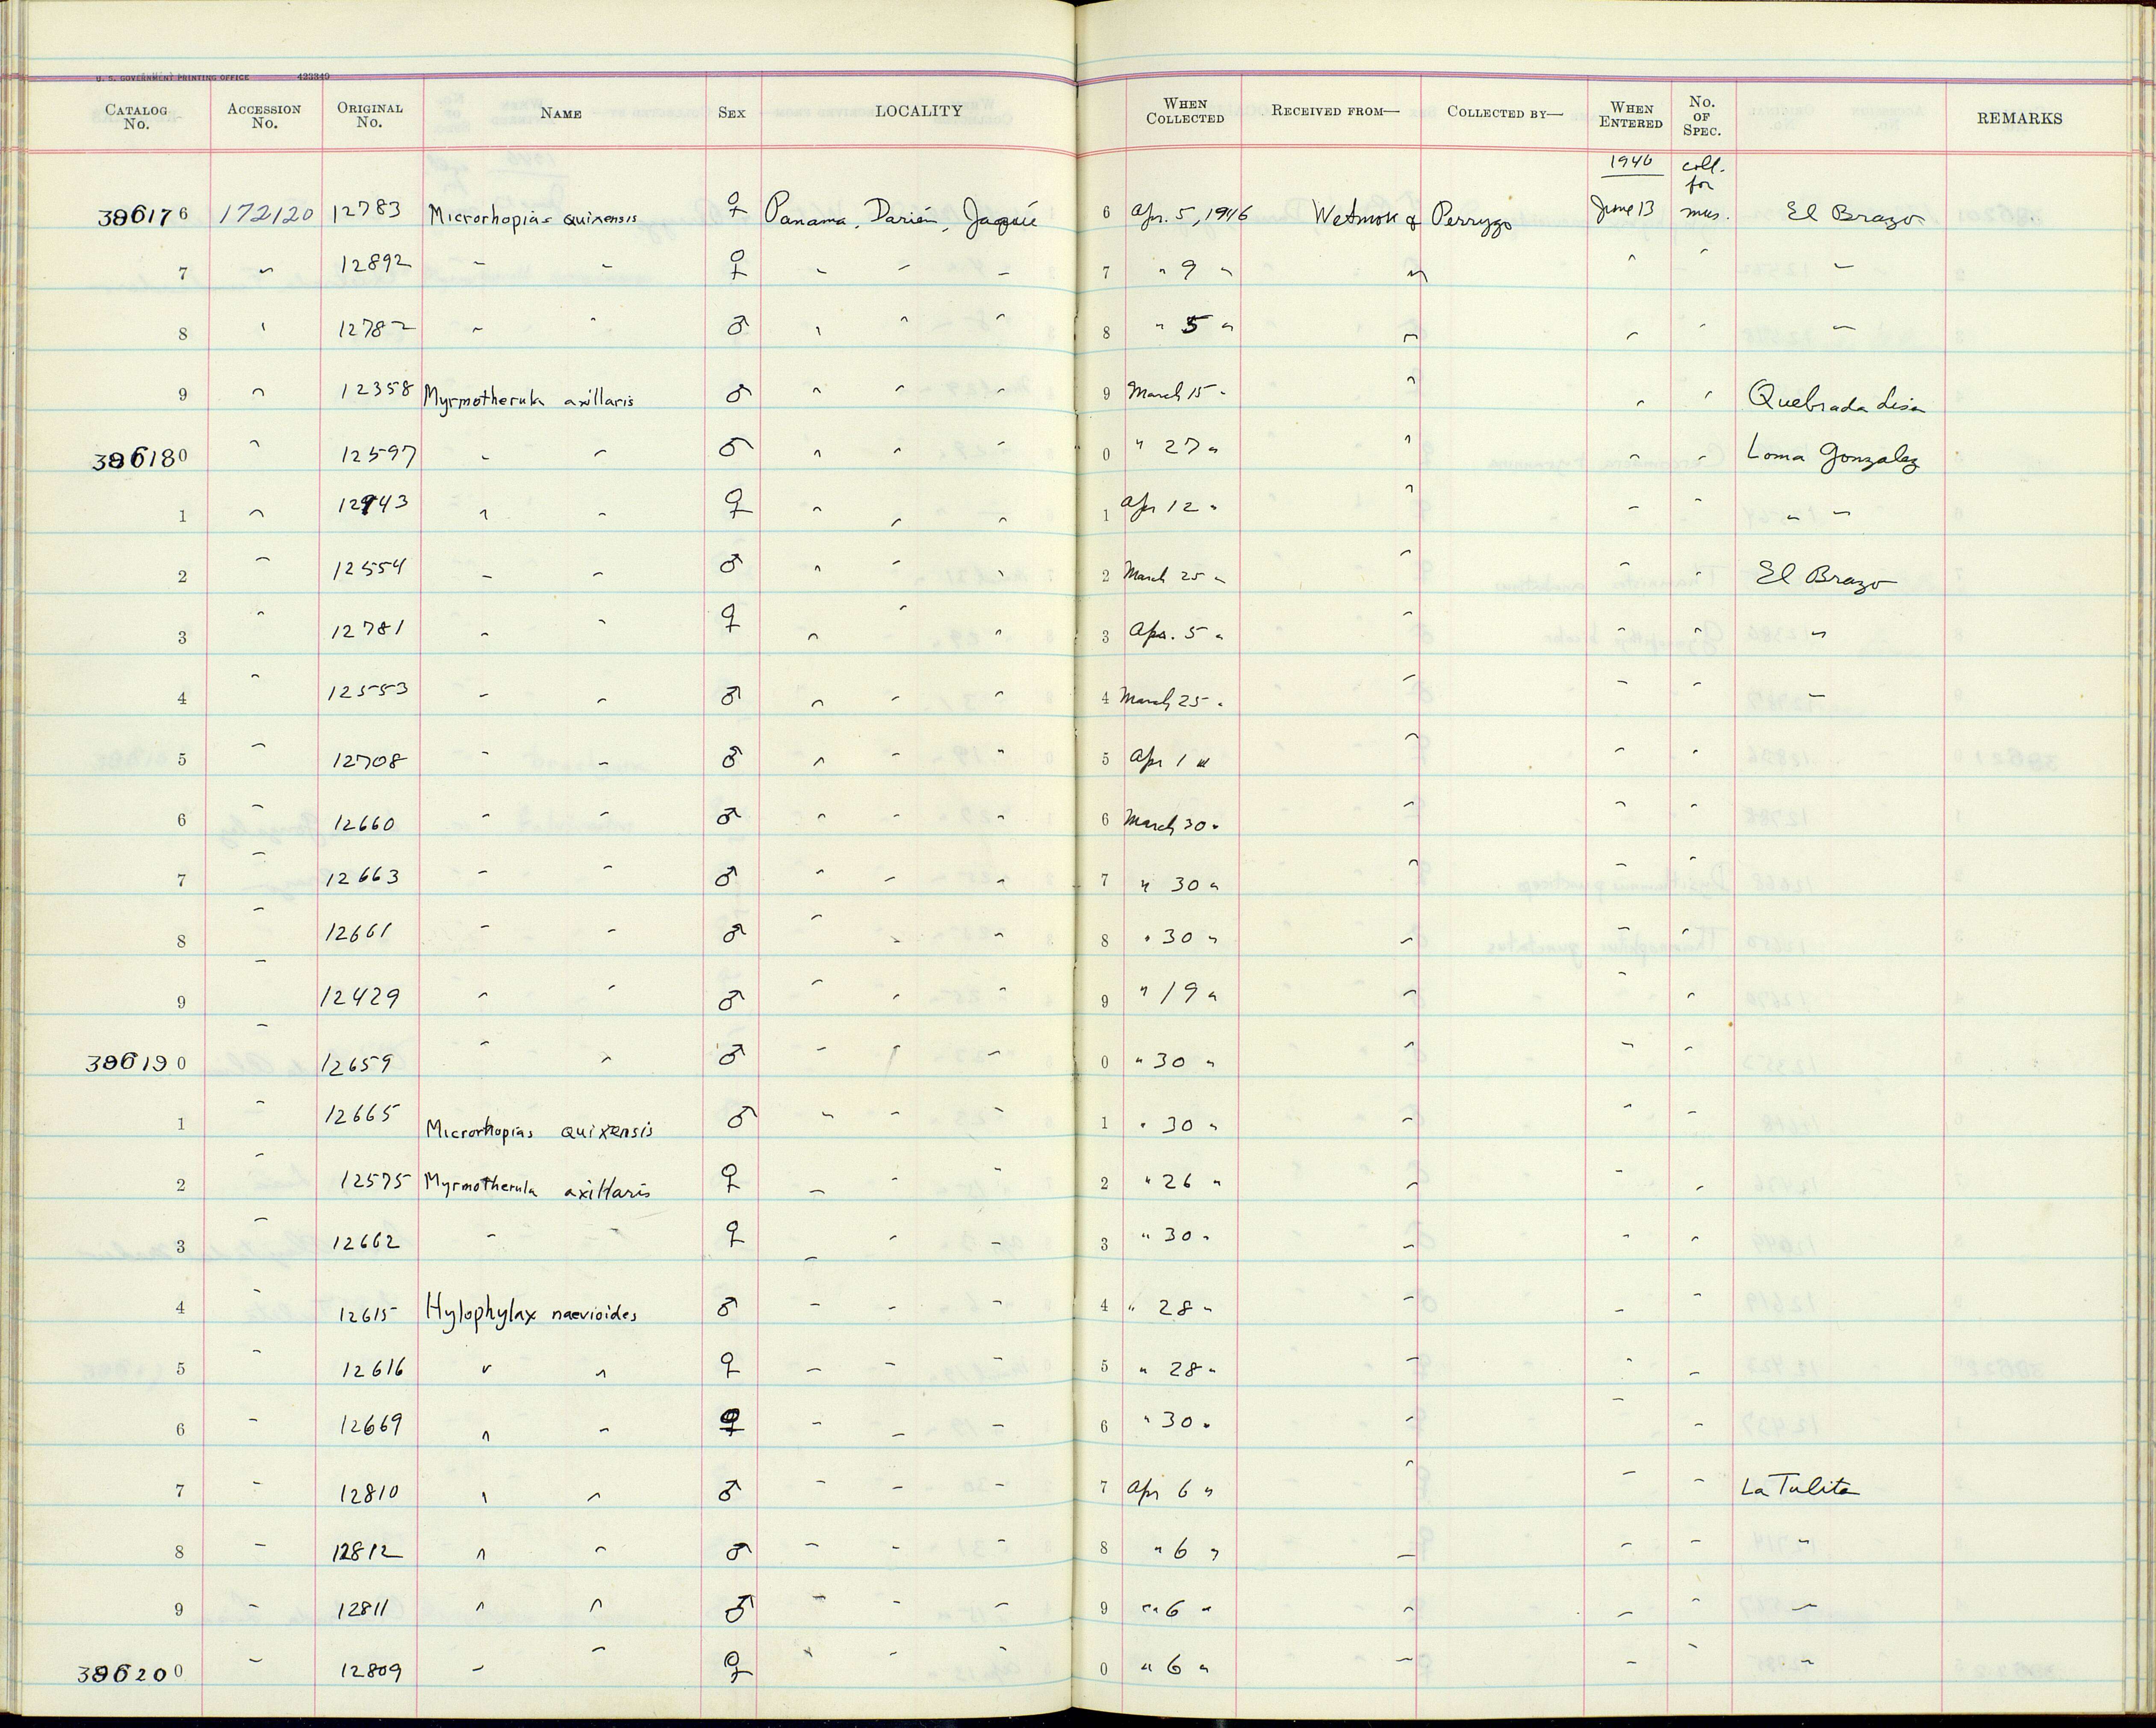 U. S. GOVERNMENT PRINTING OFFICE 423340
CATALOG No. ACCESSION No. ORIGINAL No. NAME SEX LOCALITY WHEN COLLECTED RECEIVED FROM— COLLECTED BY— WHEN ENTERED No. OF SPEC. REMARKS
1946 coll. for mus.
396176 172120 12783 Microrhopias quixensis ♀ Panama, Darién, Jaqué 6 Apr. 5, 1946 Wetmore & Perrygo June 13 El Brazo
7 " 12892 " " ♀ " " " 7 " 9 " " " " "
8 " 12782 " " ♂ " " " 8 " 5 " " " " "
9 " 12358 Myrmotherula axillaris ♂ " " " 9 March 15 " " " " Quebrada Lisa
396180 " 12597 " " ♂ " " " 0 " 27 " " " " Loma Gonzalez
1 " 12943 " " ♀ " " " 1 Apr 12 " " " " " "
2 " 12554 " " ♂ " " " 2 March 25 " " " " El Brazo
3 " 12781 " " ♀ " " " 3 Apr. 5 " " " " "
4 " 12553 " " ♂ " " " 4 March 25 " " " " "
5 " 12708 " " ♂ " " " 5 Apr 1 " " " "
6 " 12660 " " ♂ " " " 6 March 30 " " " "
7 " 12663 " " ♂ " " " 7 " 30 " " " "
8 " 12661 " " ♂ " " " 8 " 30 " " " "
9 " 12429 " " ♂ " " " 9 " 19 " " " "
396190 " 12659 " " ♂ " " " 0 " 30 " " " "
1 " 12665 Microrhopias quixensis ♂ " " " 1 " 30 " " " "
2 " 12575 Myrmotherula axillaris ♀ " " " 2 " 26 " " " "
3 " 12662 " " ♀ " " " 3 " 30 " " " "
4 " 12615 Hylophylax naevioides ♂ " " " 4 " 28 " " " "
5 " 12616 " " ♀ " " " 5 " 28 " " " "
6 " 12669 " " ♀ " " " 6 " 30 " " " "
7 " 12810 " " ♂ " " " 7 Apr 6 " " " " La Tulita
8 " 12812 " " ♂ " " " 8 " 6 " " " " "
9 " 12811 " " ♂ " " " 9 " 6 " " " " "
396200 " 12809 " " ♀ " " " 0 " 6 " " " " "